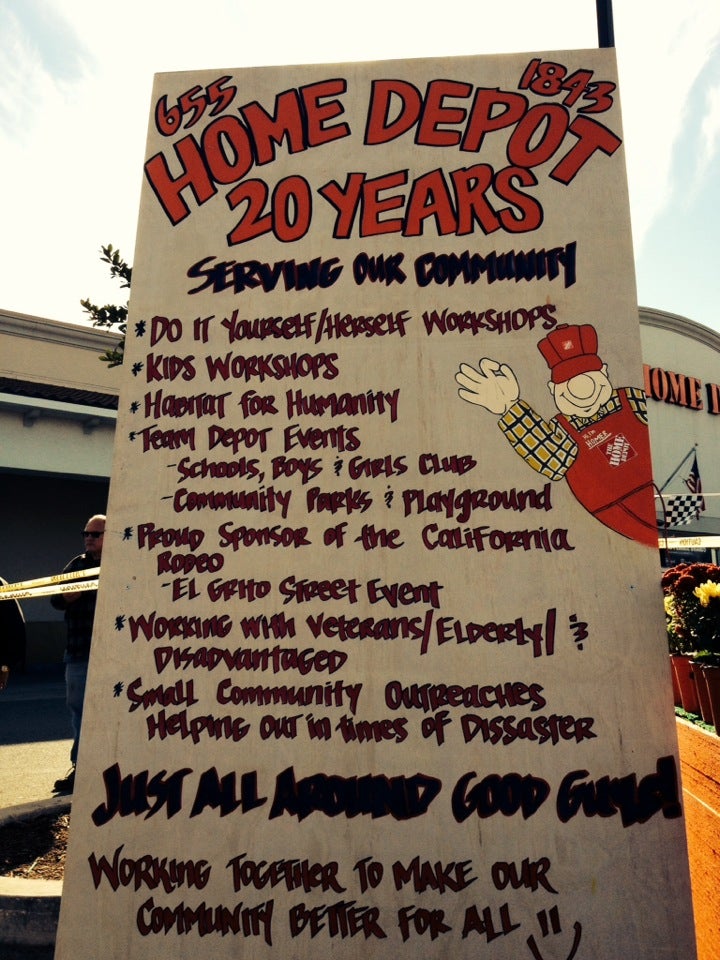 655 1843
HOME DEPOT
20 YEARS
SERVING OUR COMMUNITY
* DO IT YOURSELF/HERSELF WORKSHOPS
* KIDS WORKSHOPS
* HABITAT FOR HUMANITY
* TEAM DEPOT EVENTS
- SCHOOLS, BOYS & GIRLS CLUB
- COMMUNITY PARKS & PLAYGROUND
* PROUD SPONSOR OF THE CALIFORNIA
RODEO
- EL GRITO STREET EVENT
* WORKING WITH VETERANS/ELDERLY/&
DISADVANTAGED
* SMALL COMMUNITY OUTREACHES
HELPING OUT IN TIMES OF DISSASTER
JUST ALL AROUND GOOD GUYS!
WORKING TOGETHER TO MAKE OUR
COMMUNITY BETTER FOR ALL !!
HI I'M
HOMER
THE
HOME
DEPOT
HOME D